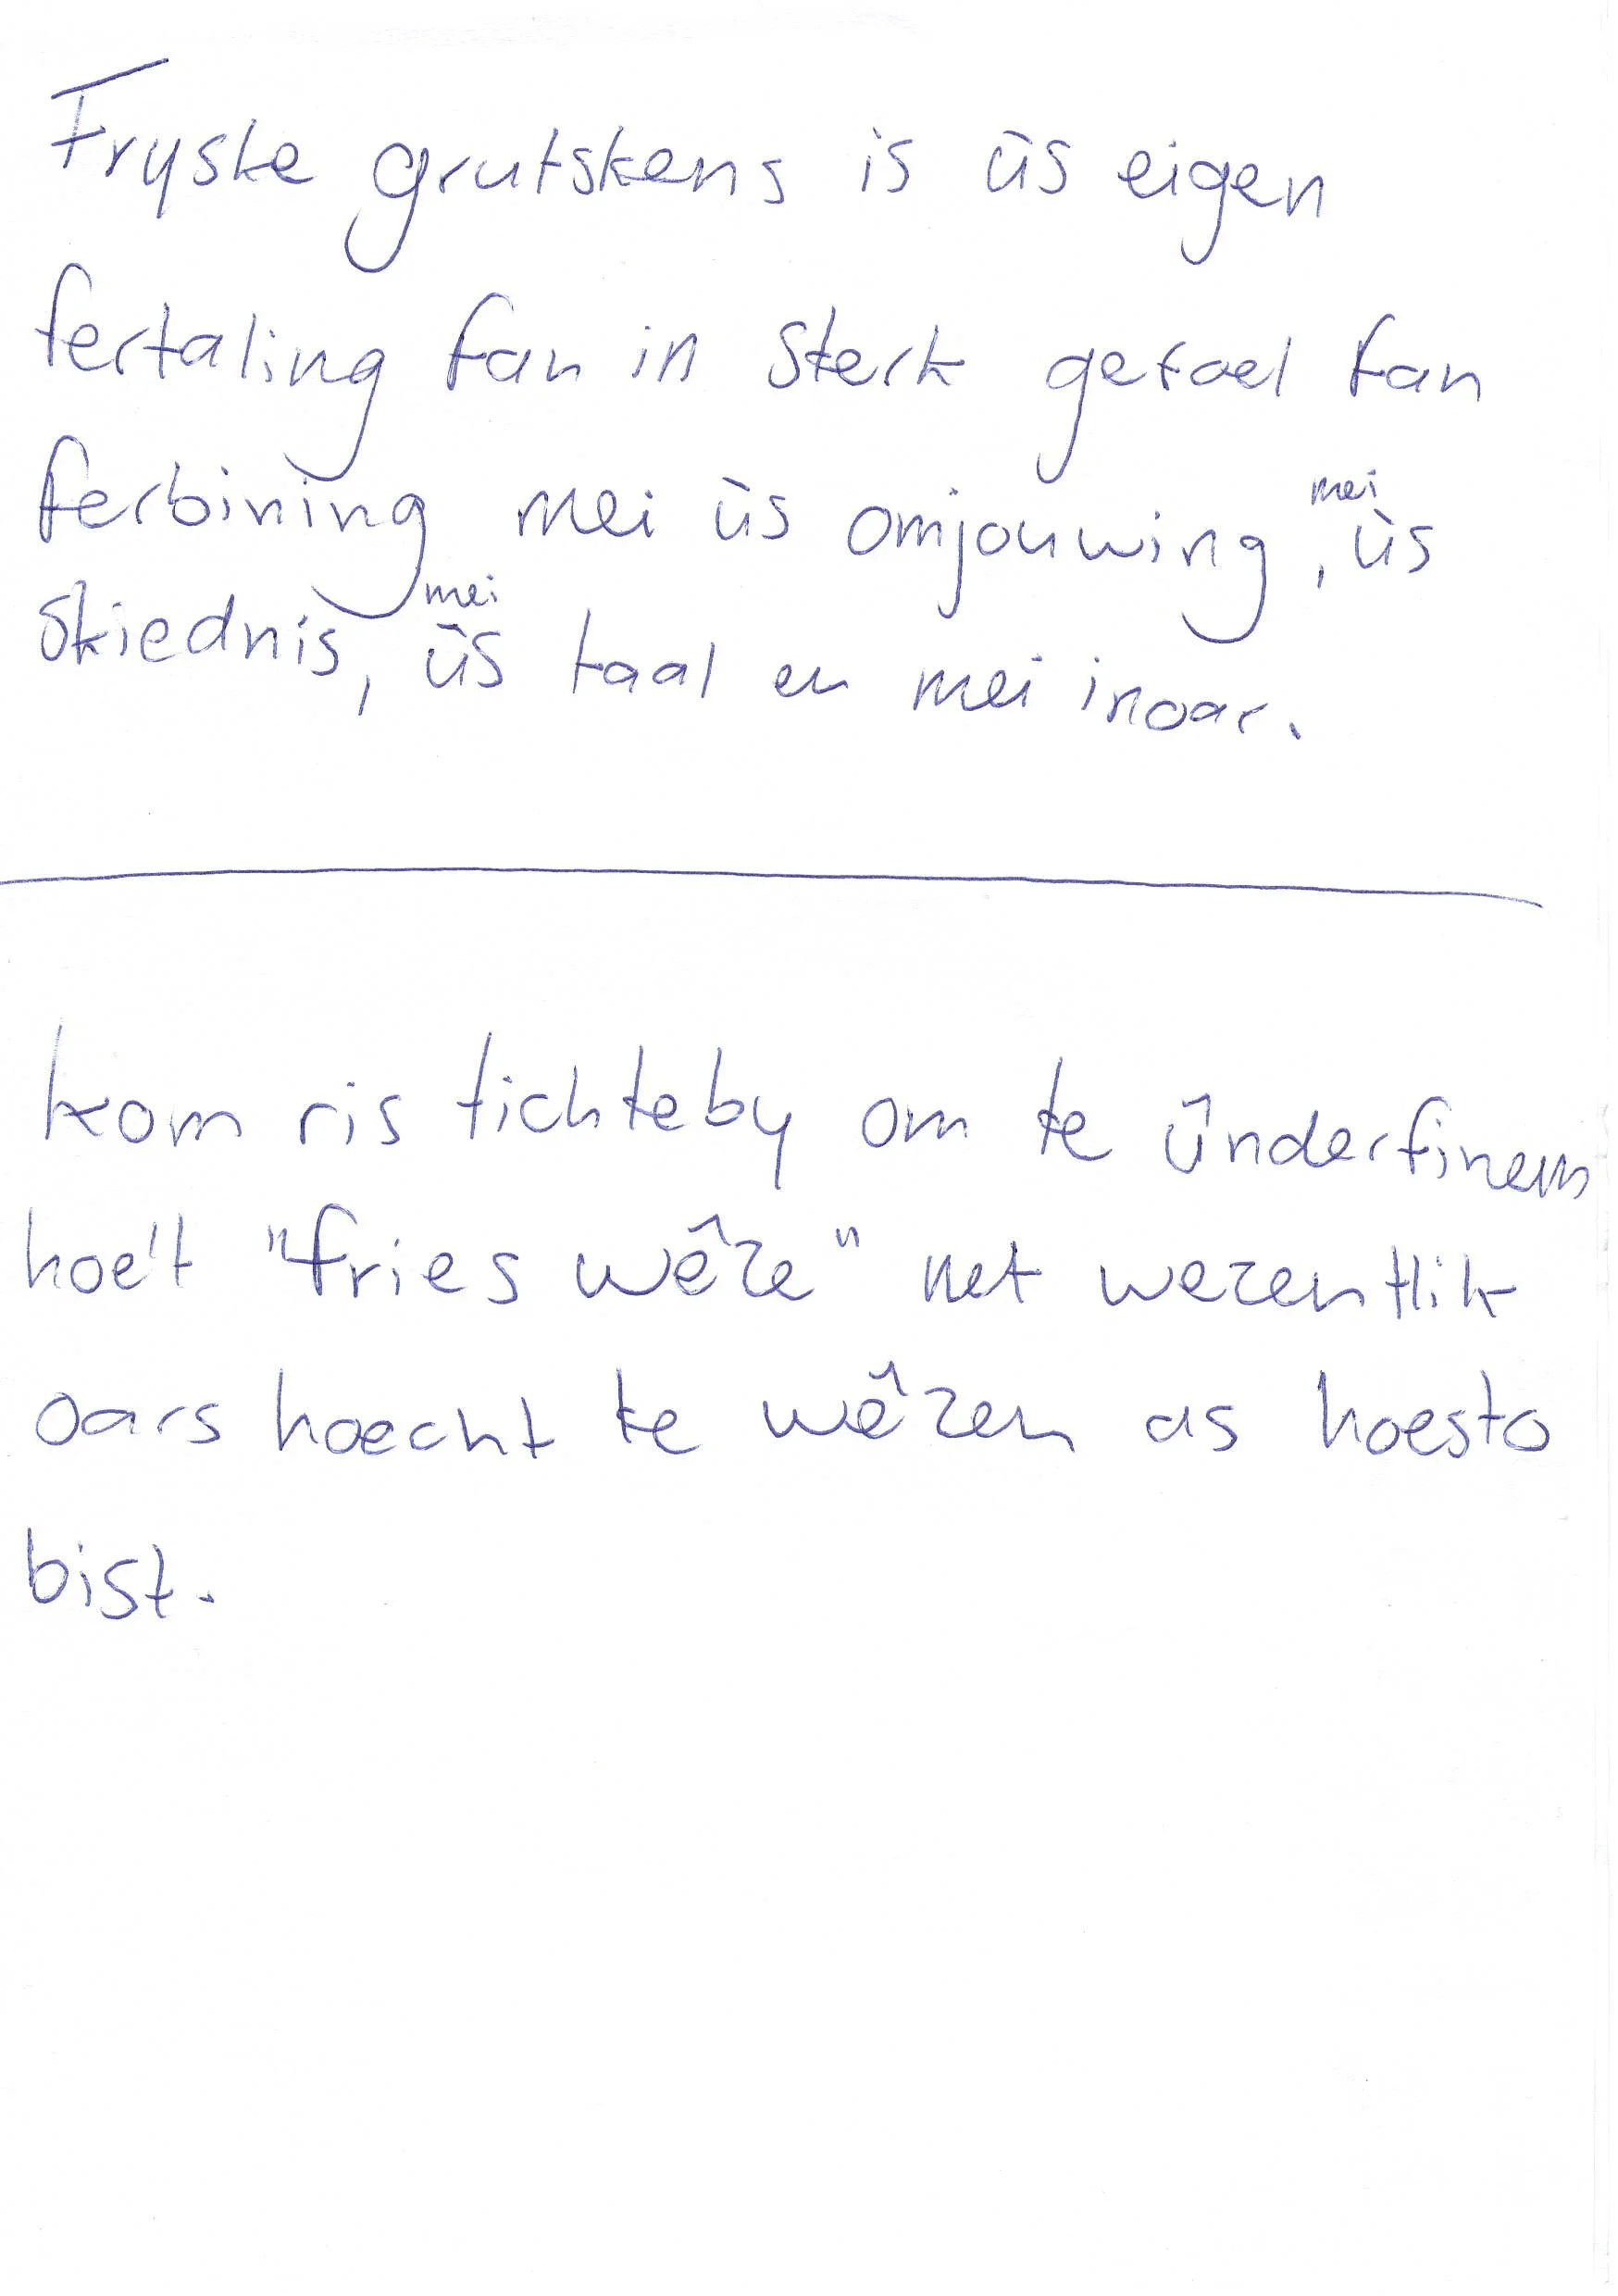 Fryske grutskens is ús eigen
fertaling fan in sterk gefoel fan
ferbining mei ús omjouwing, mei ús
skiednis, mei ús taal en mei inoar.
kom ris tichteby om te ûnderfinen
hoe't "fries wêze" net wezentlik
oars hoecht te wêzen as hoesto
bist.